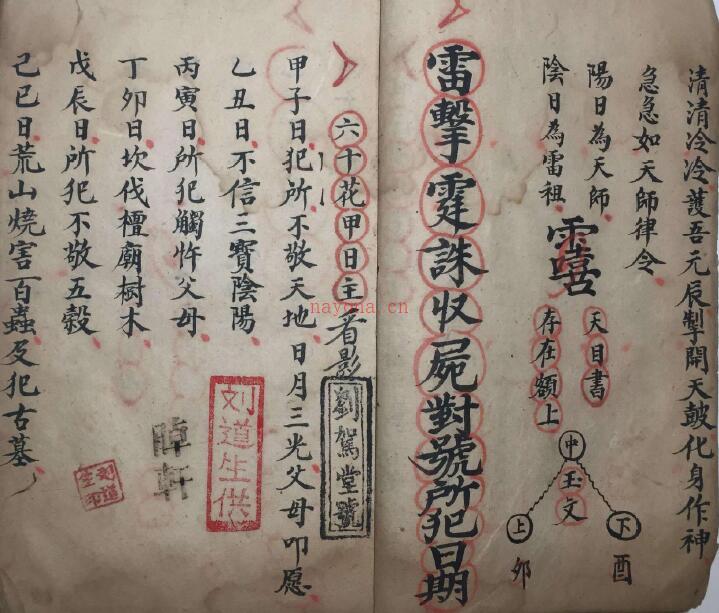 清清冷冷護吾元辰掣開天鼓化身作神
急急如天師律令
陽日為天師
陰日為雷祖
天目書
存在額上
中
玉文
上
下
卯
酉
雷擊霆誅収屍對號所犯日期
六十花甲日主看影
劉駕堂號
甲子日犯所不敬天地日月三光父母叩愿
乙丑日不信三寶陰陽
刘道生供
丙寅日所犯觸忤父母
暐轩
丁卯日坎伐檀廟樹木
戊辰日所犯不敬五穀
己巳日荒山燒害百蟲及犯古墓
nayona.cn